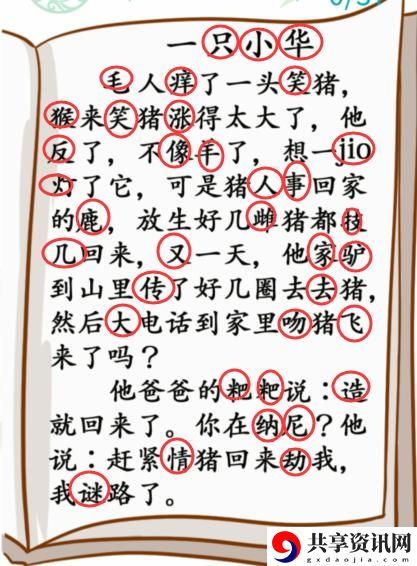 一只小华
毛人痒了一头笑猪,
猴来笑猪涨得太大了,他
反了,不像羊了,想一jio
灯了它,可是猪人事回家
的鹿,放生好几雌猪都技
几回来,又一天,他家驴
到山里传了好几圈去去猪,
然后大电话到家里吻猪飞
来了吗?
他爸爸的粑粑说:造
就回来了。你在纳尼?他
说:赶紧情猪回来劫我,
我谜路了。
共享资讯网
gxdaojia.com